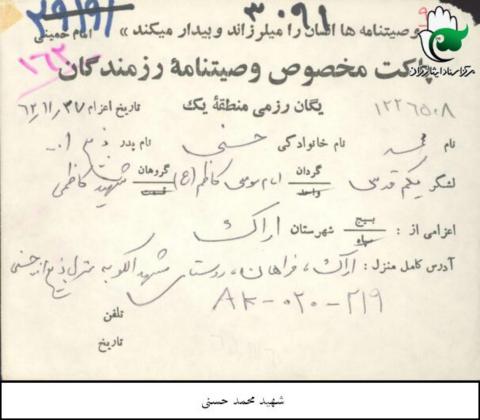 ۳۹۱۹۱ ۳۰۹۱
«وصیتنامه ها انسان را میلرزاند و بیدار میکند» امام خمینی
۱۶۲
پاکت مخصوص وصیتنامهٔ رزمندگان
مرکز اسناد ایثارگران
یگان رزمی منطقهٔ یک تاریخ اعزام ۶۲,۱۱,۲۷
۱۲۲۶۵۰۸
نام محمد نام خانوادگی حسنی نام پدر ذبیح اله
لشگر یکم قدس گردان واحد امام موسی کاظم (ع) گروهان قسمت شهید کاظمی
اعزامی از : بسیج سپاه شهرستان اراک
آدرس کامل منزل : اراک، فراهان، روستای مشهد الکوبه منزل ذبیح اله حسنی
AK-020-219
تلفن
تاریخ
شهید محمد حسنی